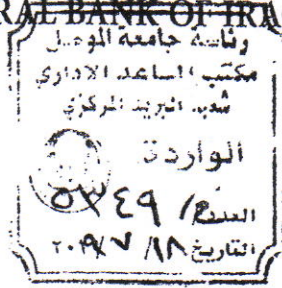 RAL BANK OF IRA
رئاسة جامعة الموصل
مكتب المساعد الاداري
شعبة البريد المركزي
الواردة
العدد / ٥٧٤٩
التاريخ ١٨ / ٧ / ٢٠١٩